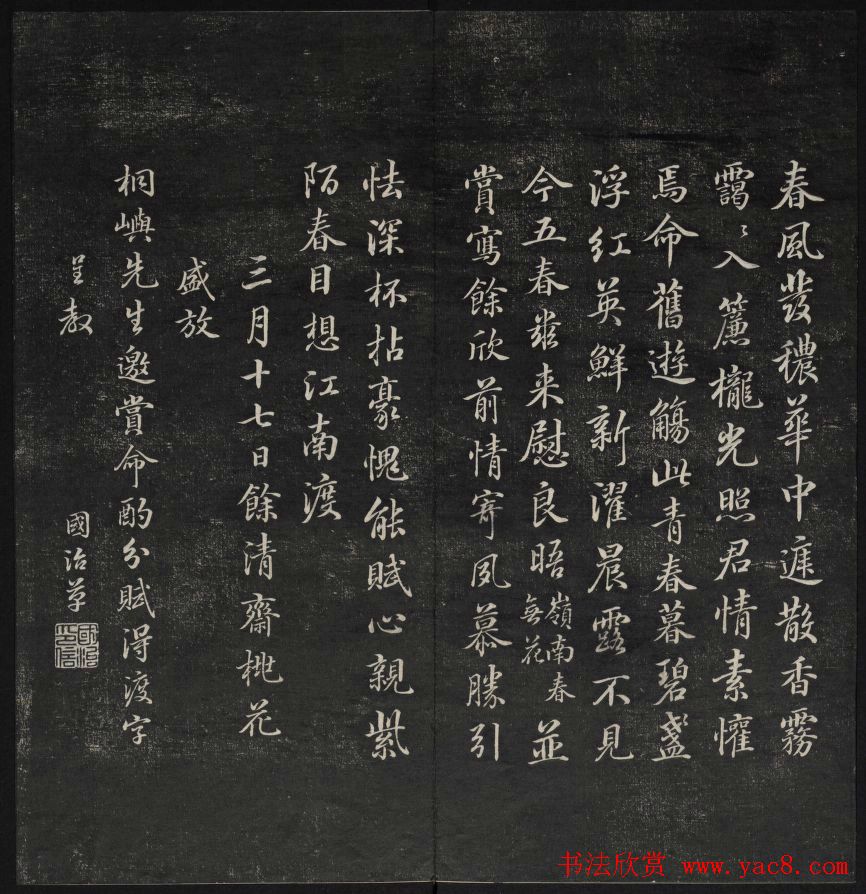 春風發穠華中庭散香霧
靄〻入簾櫳光照君情素懽
焉命舊遊觴此青春暮碧盞
浮紅英鮮新濯晨露不見
今五春發来慰良晤嶺南春無花並
賞寫餘欣前情寄夙慕勝引
怯深杯拈豪愧能賦心親紫
陌春目想江南渡
三月十七日餘清齋桃花
盛放
桐嶼先生邀賞命酌分賦得渡字
呈教
國治草
書法欣赏 www.yac8.com